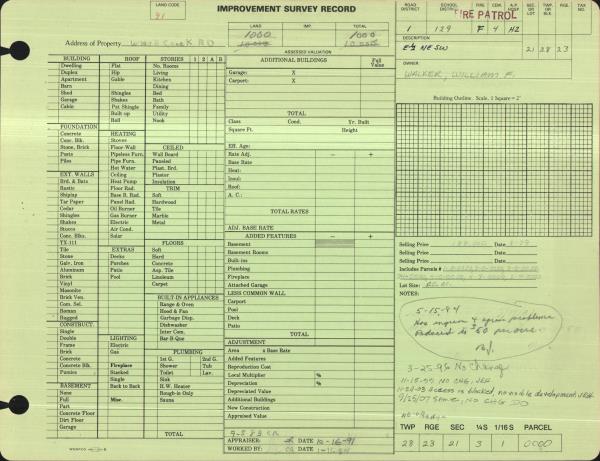 LAND CODE
91
IMPROVEMENT SURVEY RECORD
LAND IMP. TOTAL
1000 1000
ASSESSED VALUATION
Address of Property
ROAD DISTRICT SCHOOL DISTRICT FIRE CEM. HOSP. SEC. OR LOT TWP. OR BLK RGE. TAX NO.
FIRE PATROL
1 129 F 4 H2
E½ NE SW 21 28 23
OWNER
WALKER, WILLIAM F.
BUILDING ROOF STORIES 1 2 A B
Dwelling Flat No. Rooms
Duplex Hip Living
Apartment Gable Kitchen
Barn Dining
Shed Shingles Bed
Garage Shakes Bath
Cabin Pat Shingle Family
Built up Utility
Roll Nook
FOUNDATION
Concrete HEATING
Conc. Blk. Stoves CEILED
Stone, Brick Floor-Wall Wall Board
Posts Pipeless Furn. Paneled
Piles Pipe Furn. Plast. Brd.
Hot Water Plaster
EXT. WALLS Ceiling Insulation
Brd. & Bats Heat Pump TRIM
Rustic Floor Rad.
Shiplap Base B. Rad. Soft
Tar Paper Panel Rad. Hardwood
Cedar Oil Burner Tile
Shingles Gas Burner Marble
Shakes Electric Metal
Stucco Air Cond.
Conc. Blks. Solar
TX-111 FLOORS
Tile EXTRAS Soft
Stone Decks Hard
Galv. Iron Porches Concrete
Aluminum Patio Asp. Tile
Brick Pool Linoleum
Vinyl Carpet
Masonite
Brick Ven. BUILT-IN APPLIANCES
Com. Sel. Range & Oven
Roman Hood & Fan
Rugged Garbage Disp.
CONSTRUCT. Dishwasher
Single Inter Com.
Double LIGHTING Bar-B-Que
Frame Electric
Brick Gas PLUMBING
Concrete 1st G. 2nd G.
Concrete Blk. Fireplace Shower Tub
Pumice Stacked Toilet Lav.
Single Sink
BASEMENT Back to Back H.W. Heater
None Rough-in Only
Full Misc. Sauna
Part
Concrete Floor
Dirt Floor
Garage TOTAL
ADDITIONAL BUILDINGS Full Value
Garage: X
Carport: X
TOTAL
Class Cond. Yr. Built
Square Ft. Height
Eff. Age:
Rate Adj. – +
Base Rate
Heat:
Insul:
Roof:
A. C.:
TOTAL RATES
ADJ. BASE RATE
ADDED FEATURES – +
Basement
Basement Rooms
Built-ins
Plumbing
Fireplace
Attached Garage
LESS COMMON WALL
Carport
Pool
Deck
Patio
TOTAL
ADJUSTMENT
Area x Base Rate
Added Features
Reproduction Cost
Local Multiplier %
Depreciation %
Depreciated Value
Additional Buildings
New Construction
Appraised Value
APPRAISER: DATE 10-16-91
WORKED BY: DATE
Building Outline. Scale. 1 Square = 2'
Selling Price Date
Selling Price Date
Includes Parcels #
Lot Size:
NOTES:
5-15-94
3-25-96 No Change
11-15-99 NO CHG, JEH
11-24-03 access is blocked, no visible development, JEH
9/25/07 Same, NO CHG
TWP RGE SEC ¼S 1/16S PARCEL
28 23 21 3 1 0000